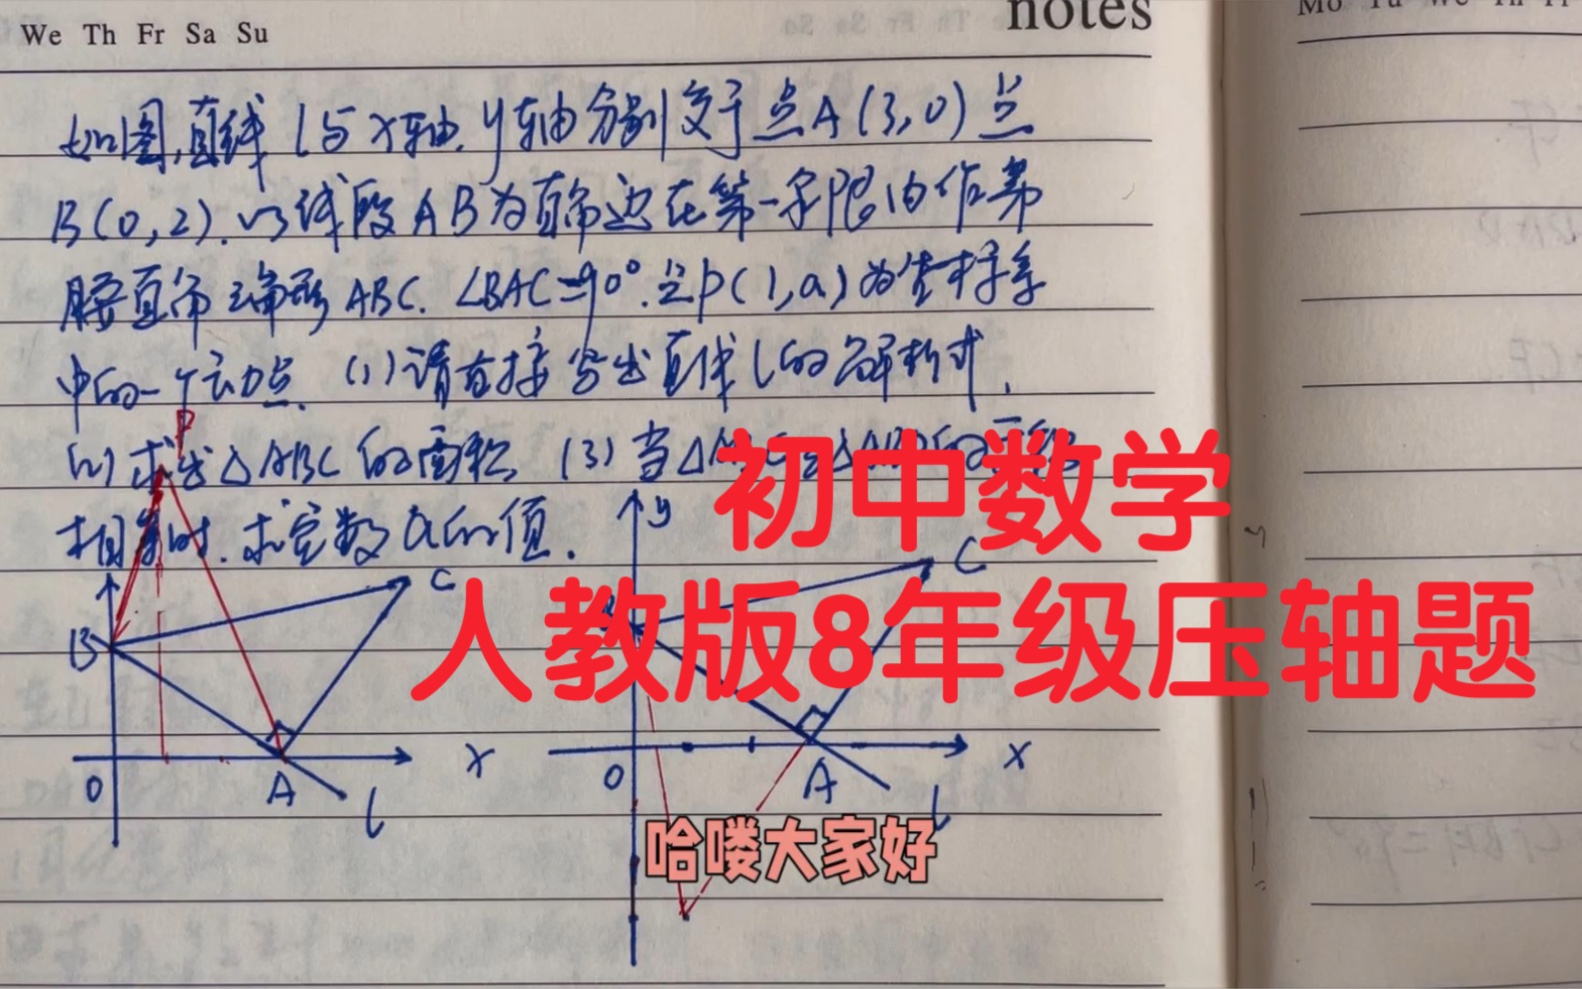 We Th Fr Sa Su
notes
Mo Tu We Th Fr
如图,直线l与x轴.y轴分别交于点A(3,0)点
B(0,2).以线段AB为直角边在第一象限内作等
腰直角三角形ABC.∠BAC=90°.点P(1,a)为坐标系
中的一个动点.(1)请直接写出直线l的解析式.
(2)求出△ABC的面积 (3)当△
相等时.求实数a的值.
初中数学
人教版8年级压轴题
P
B
C
O
A
l
x
y
C
O
A
l
x
哈喽大家好